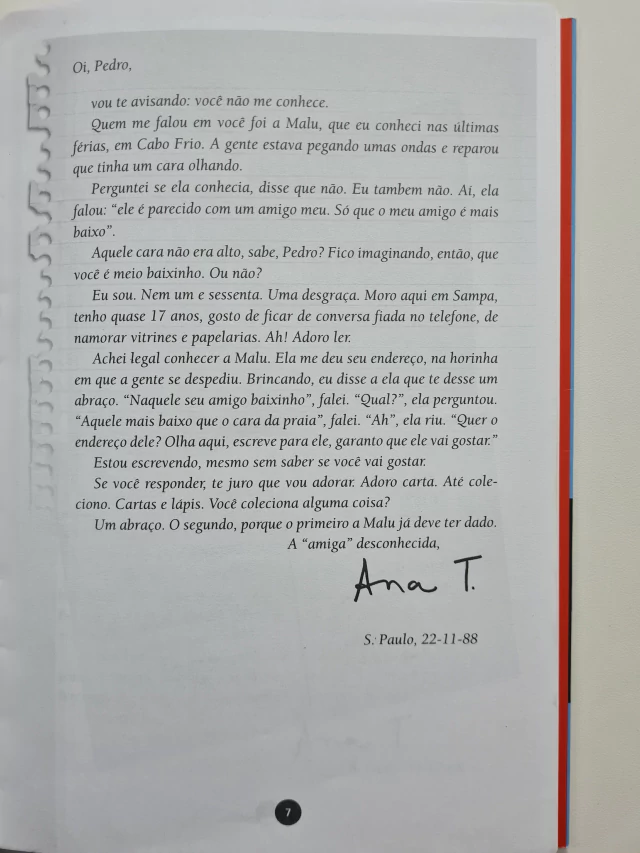 Oi, Pedro,
vou te avisando: você não me conhece.
Quem me falou em você foi a Malu, que eu conheci nas últimas
férias, em Cabo Frio. A gente estava pegando umas ondas e reparou
que tinha um cara olhando.
Perguntei se ela conhecia, disse que não. Eu tambem não. Aí, ela
falou: “ele é parecido com um amigo meu. Só que o meu amigo é mais
baixo”.
Aquele cara não era alto, sabe, Pedro? Fico imaginando, então, que
você é meio baixinho. Ou não?
Eu sou. Nem um e sessenta. Uma desgraça. Moro aqui em Sampa,
tenho quase 17 anos, gosto de ficar de conversa fiada no telefone, de
namorar vitrines e papelarias. Ah! Adoro ler.
Achei legal conhecer a Malu. Ela me deu seu endereço, na horinha
em que a gente se despediu. Brincando, eu disse a ela que te desse um
abraço. “Naquele seu amigo baixinho”, falei. “Qual?”, ela perguntou.
“Aquele mais baixo que o cara da praia”, falei. “Ah”, ela riu. “Quer o
endereço dele? Olha aqui, escreve para ele, garanto que ele vai gostar.”
Estou escrevendo, mesmo sem saber se você vai gostar.
Se você responder, te juro que vou adorar. Adoro carta. Até cole-
ciono. Cartas e lápis. Você coleciona alguma coisa?
Um abraço. O segundo, porque o primeiro a Malu já deve ter dado.
A “amiga” desconhecida,
Ana T.
S. Paulo, 22-11-88
7